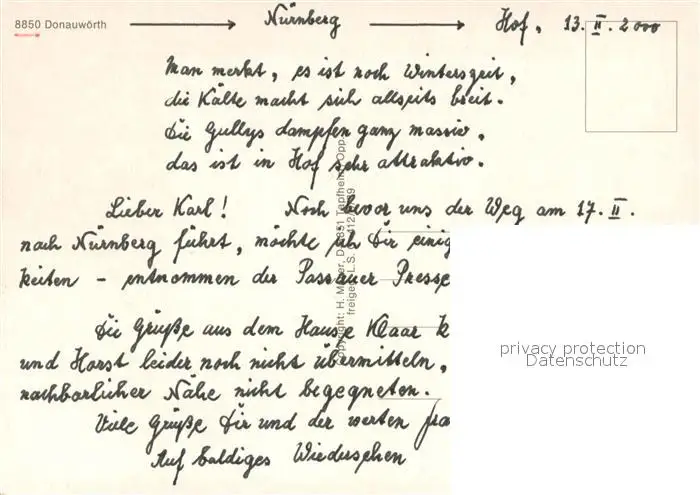 8850 Donauwörth → Nürnberg → Hof, 13. II. 2000
Man merkt, es ist noch Winterszeit,
die Kälte macht sich allseits breit.
Die Gullys dampfen ganz massiv,
das ist in Hof sehr attraktiv.
Lieber Karl! Noch bevor uns der Weg am 17. II.
nach Nürnberg führt, möchte ich Dir einig
keiten – entnommen der Passauer Presse
Die Grüße aus dem Hause Klaar k
und Horst leider noch nicht übermitteln,
nachbarlicher Nähe nicht begegneten.
Viele Grüße Dir und der werten fra
Auf baldiges Wiedersehen
privacy protection
Datenschutz